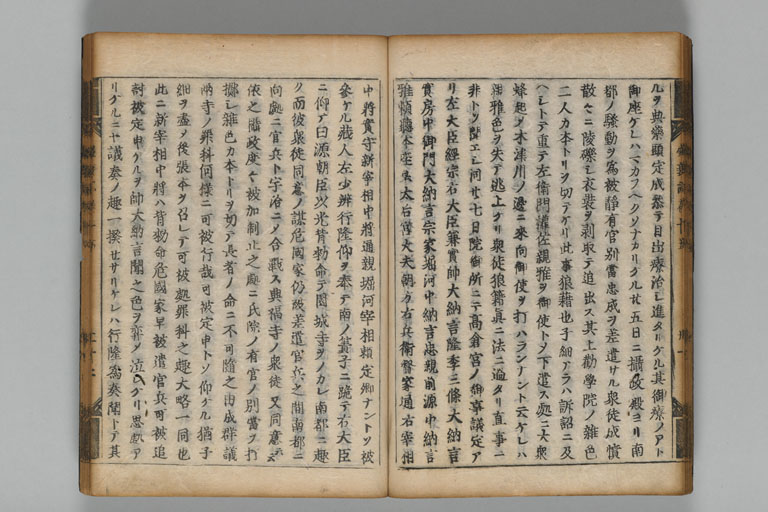 ルヲ典薬頭定成参テ目出療治シ進タリケル其御療ノアト
御座ケレハマカフヘクソナカリケル廿五日ニ攝政殿ヨリ南
都ノ騒動ヲ為被静有官別當忠成ヲ差遣サル衆徒成憤
散々ニ陵礫シ衣裳ヲ剥取テ追出ス其上勸學院ノ雜色
二人カ本トリヲ切テケリ此事狼藉也子細アラハ訴詔ニ及
ヘシトテ重テ左衛門權佐親雅ヲ御使トソ下遣ス處ニ大衆
蜂起シ木津川ノ邊ニ来向御使ヲ打ハランナント云ケレハ
親雅色ヲ失テ逃上ケリ衆徒狼籍真ニ法ニ過タリ直事ニ
非トソ聞エシ同廿七日院御所ニテ高倉宮ノ御事議定ア
リ左大臣經宗右大臣兼實帥大納言隆季三條大納言
實房中御門大納言宗家堀河中納言忠親前源中納言
雅頼藤本 太皇太后宮大夫朝方右兵衛督家通右宰相
中將實守新宰相中將通親堀河宰相頼定卿ナントソ被
參ケル蔵人左少辨行隆仰ヲ奉テ南ノ簀子ニ跪テ右大臣
ニ仰ア曰源朝臣以光背勅命テ園城寺ヲノカレ南都ニ趣
ク而彼衆徒同意ノ謀危國家仍故差遣官兵之間南都ニ
向處ニ官兵ト宇治ニメ合戰ス興福寺ノ衆徒又同意ス
依之攝政度々被加制止之處ニ氏院ノ有官ノ別當ヲ打
擲シ雜色カ本トリヲ切テ長者ノ命ニ不可隨之由成群議
兩寺ノ罪科何樣ニ可被行哉可被定申トソ仰ケル猶子
細ヲ盡メ後張本ヲ召レテ可被處罪科之趣大略一同也
此ニ新宰相中將共背勅命危國家早被遣官兵可被追
討被定申ケルヲ帥大納言聞之色ヲ
リケルニヤ議奏ノ趣一揆セサリケレハ行隆為奏聞トテ其